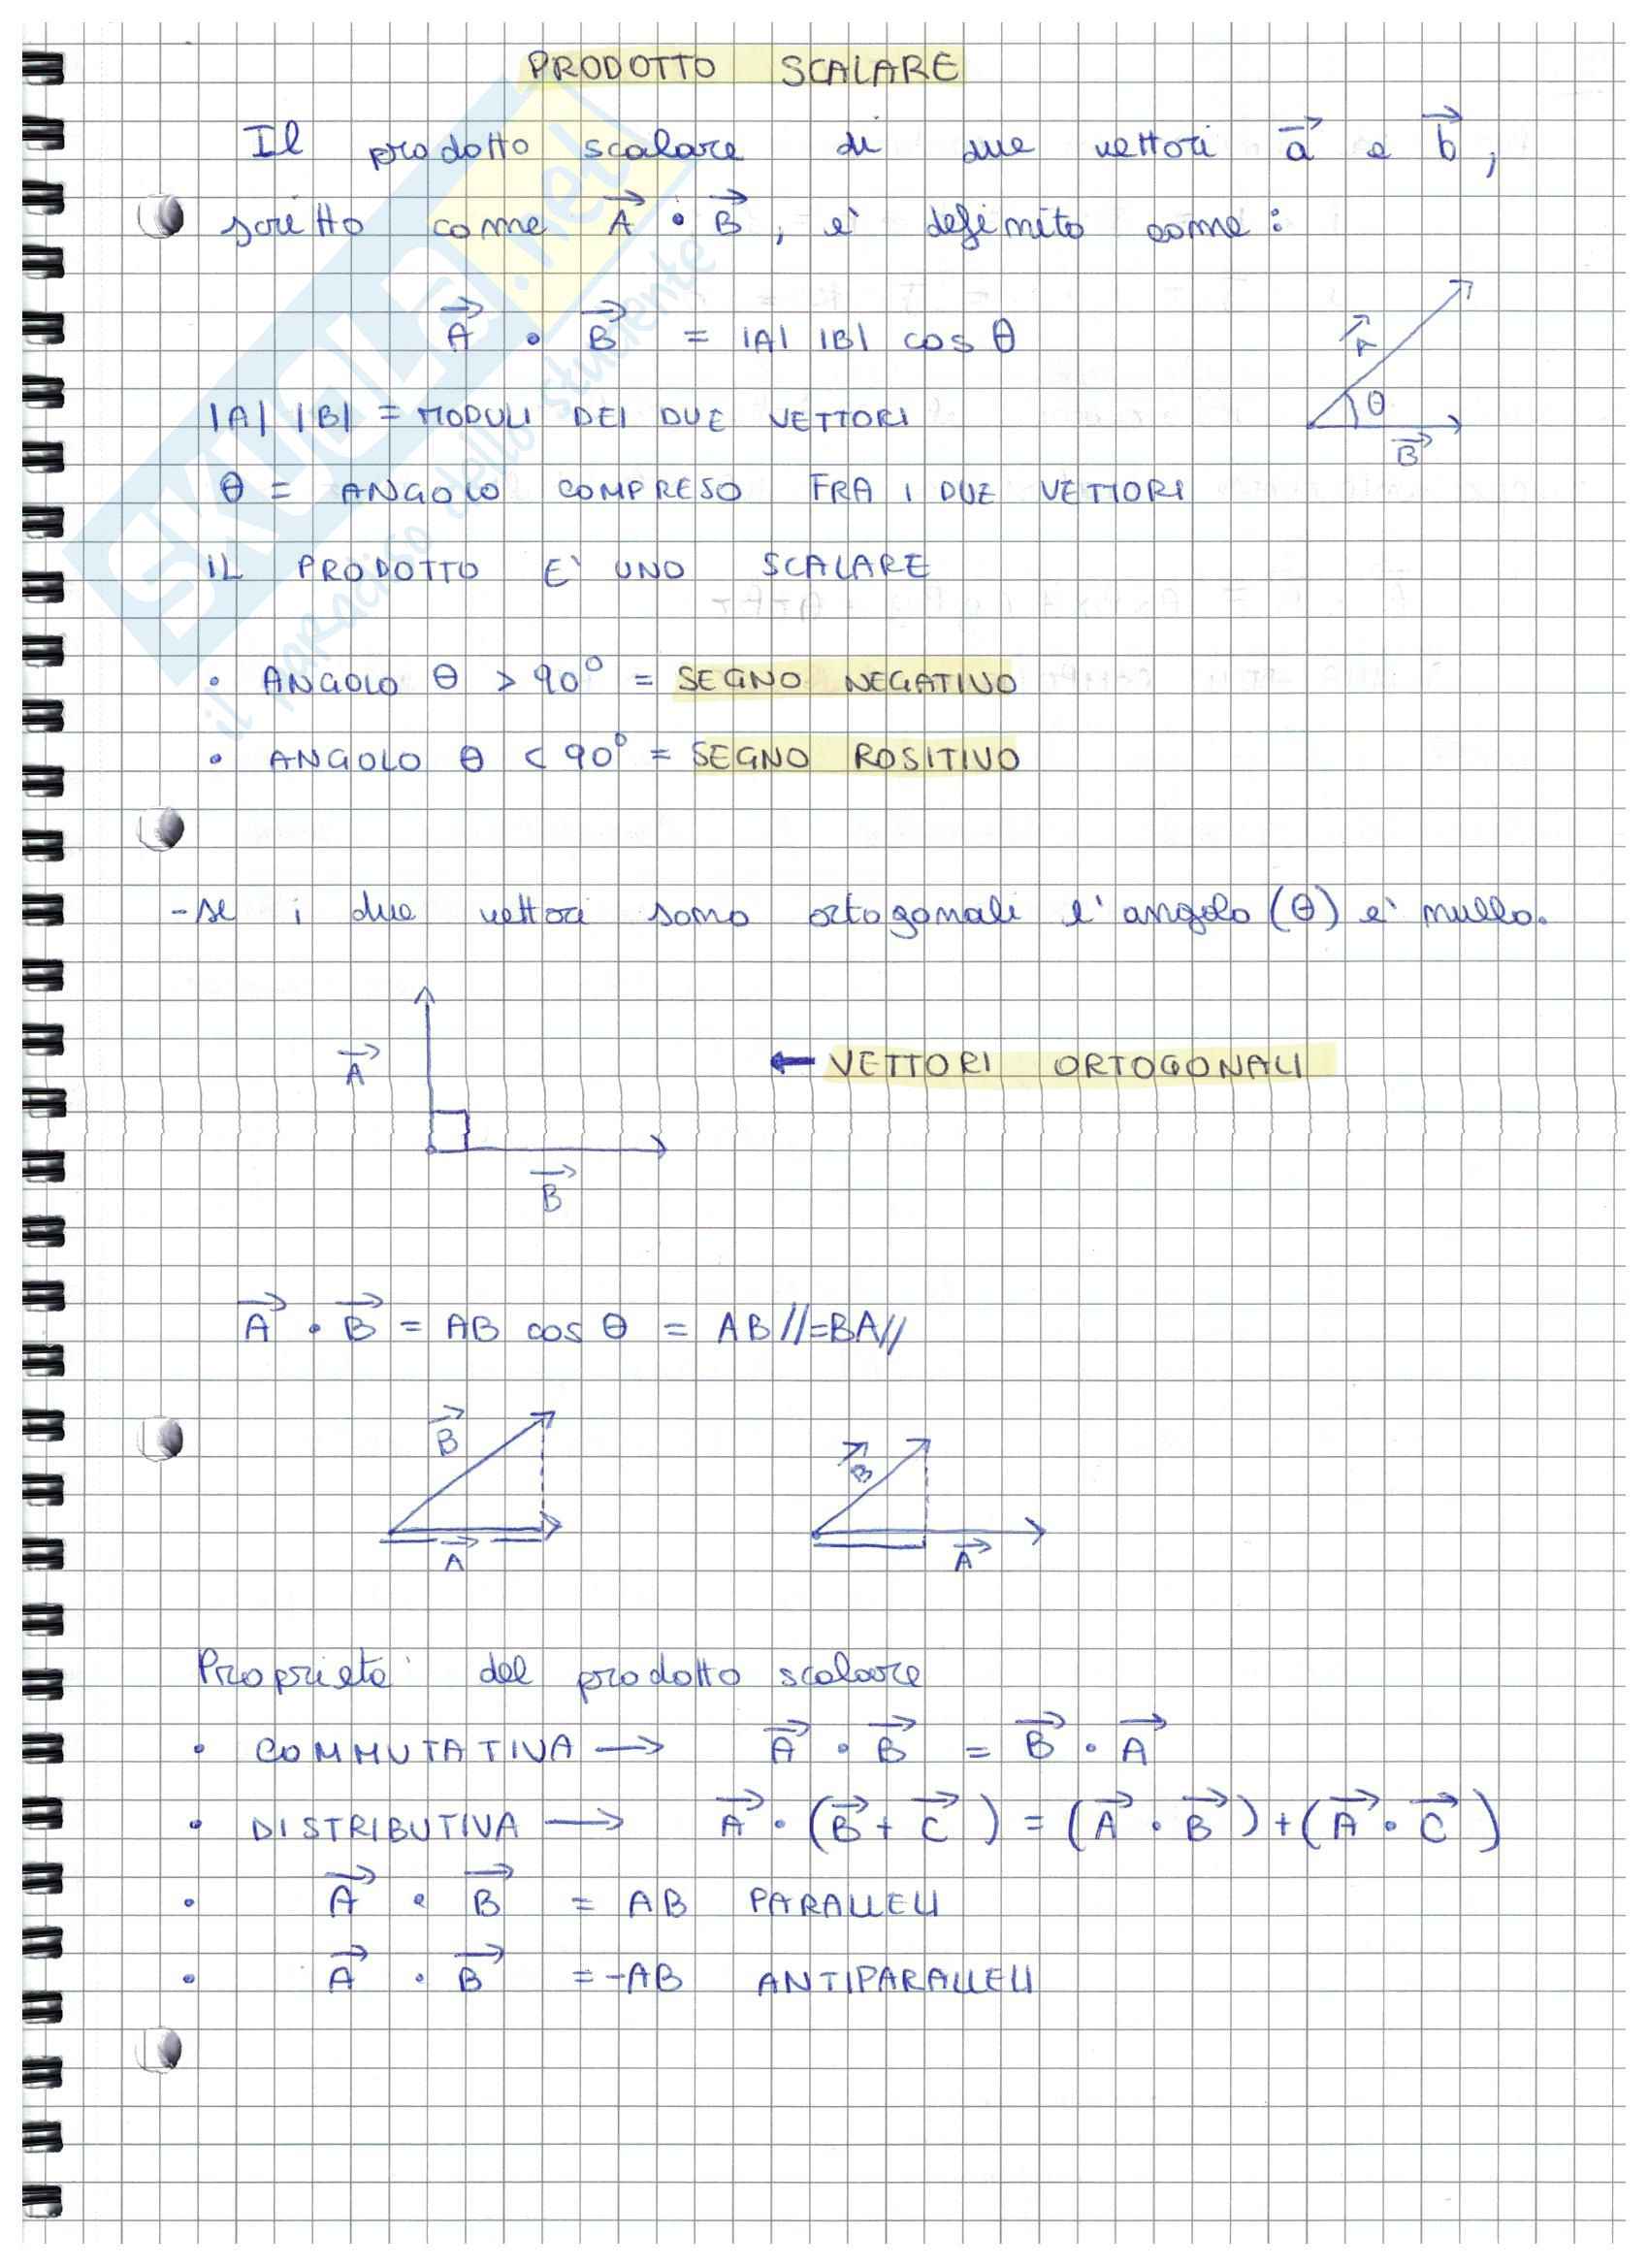 PRODOTTO SCALARE
Il prodotto scalare di due vettori a⃗ e b⃗,
scritto come A⃗ • B⃗, e' definito come:
A⃗ • B⃗ = |A| |B| cos θ
A⃗
θ
B⃗
|A| |B| = MODULI DEI DUE VETTORI
θ = ANGOLO COMPRESO FRA I DUE VETTORI
IL PRODOTTO E' UNO SCALARE
• ANGOLO θ > 90° = SEGNO NEGATIVO
• ANGOLO θ < 90° = SEGNO ROSITIVO
- se i due vettori sono ortogonali l'angolo (θ) e' nullo.
A⃗
← VETTORI ORTOGONALI
B⃗
A⃗ • B⃗ = AB cos θ = AB//=BA//
B⃗
B⃗
A⃗
A⃗
Proprieta' del prodotto scalare
• COMMUTATIVA → A⃗ • B⃗ = B⃗ • A⃗
• DISTRIBUTIVA → A⃗ • (B⃗ + C⃗) = (A⃗ • B⃗) + (A⃗ • C⃗)
• A⃗ • B⃗ = AB PARALLELI
• A⃗ • B⃗ = -AB ANTIPARALLELI
SKUOLA.net
il paradiso dello studente